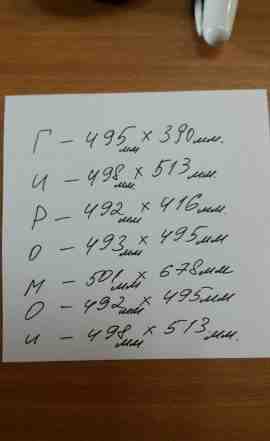 Г – 495 мм × 390 мм.
И – 498 мм × 513 мм.
Р – 492 мм × 416 мм.
О – 493 мм × 495 мм
М – 501 мм × 678 мм
О – 492 мм × 495 мм
И – 498 мм × 513 мм.